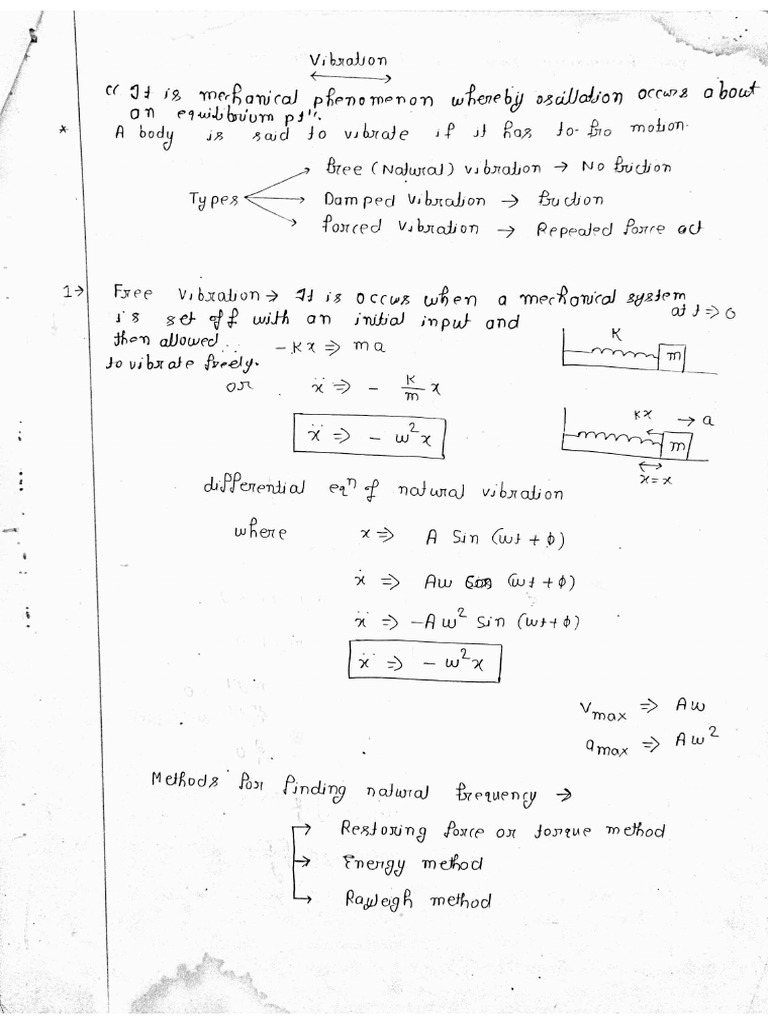 Vibration
"It is mechanical phenomenon whereby oscillation occurs about
an equilibrium pt".
* A body is said to vibrate if it has to-fro motion.
Types
free (Natural) vibration → No friction
Damped Vibration → friction
forced Vibration → Repeated force act
1→ Free Vibration → It is occurs when a mechanical system
is set off with an initial input and
then allowed
to vibrate freely.
-Kx ⇒ ma
or ẍ ⇒ - K/m x
ẍ ⇒ - ω²x
at t ⇒ 0
K
m
Kx → a
m
x = x
differential eqⁿ of natural vibration
where x ⇒ A Sin (ωt + ϕ)
ẋ ⇒ Aω Cos (ωt + ϕ)
ẍ ⇒ -Aω² Sin (ωt + ϕ)
ẍ ⇒ - ω²x
Vmax ⇒ Aω
amax ⇒ Aω²
Methods for finding natural frequency →
→ Restoring force or torque method
→ Energy method
→ Rayleigh method